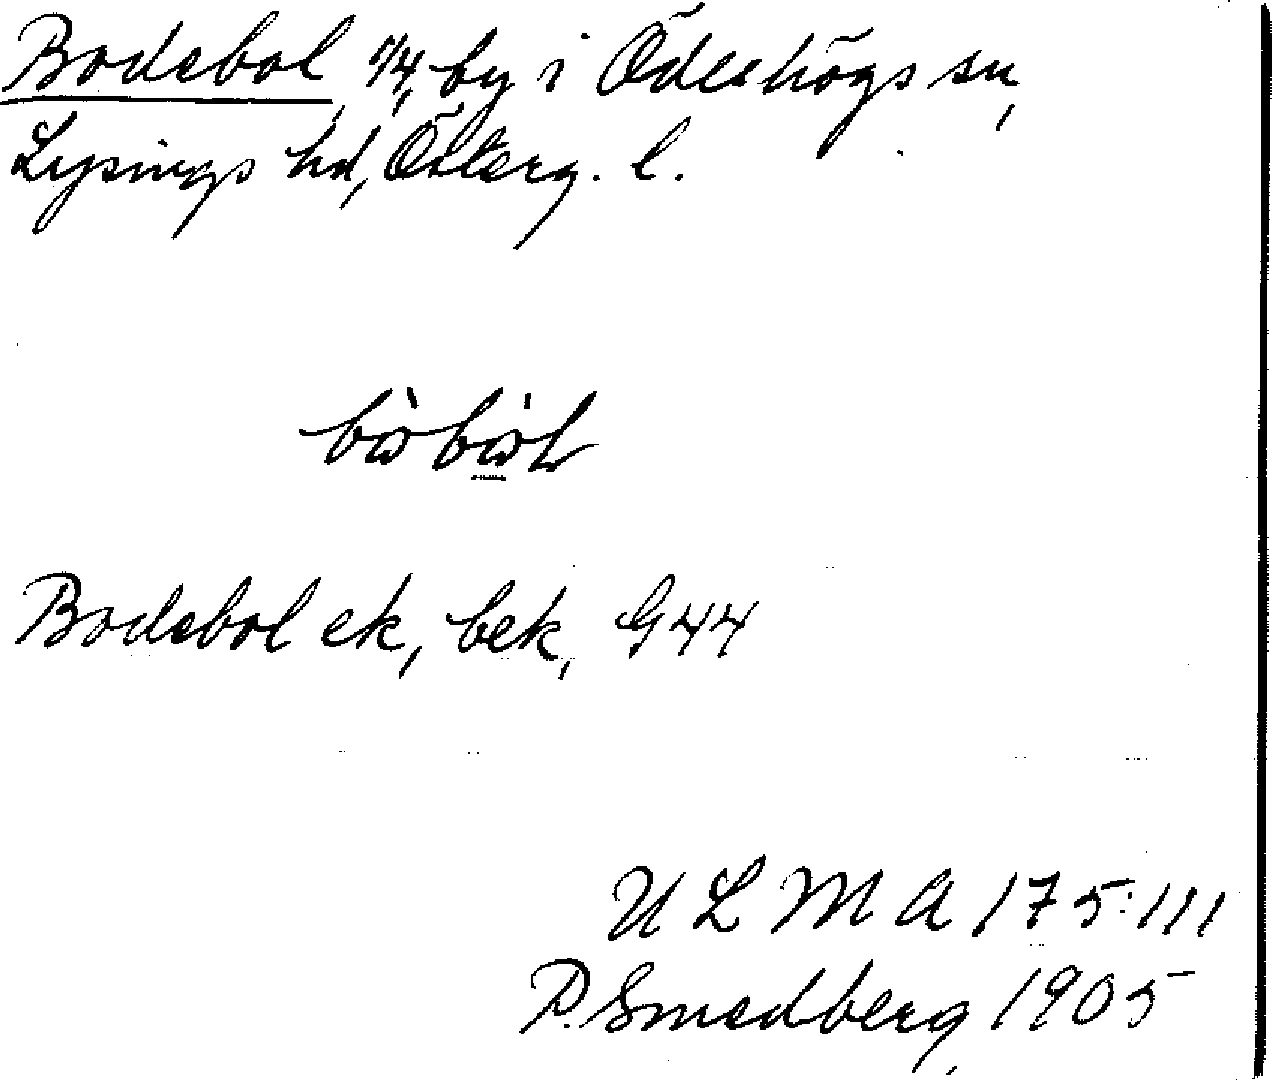 Bodebol 1/4, by i Ödeshögs sn,
Lysings hd, Österg. l.
bɷ̀bɷ̇L
Bodebol ek, bek, G44
ULMA 175:111
P. Smedberg, 1905